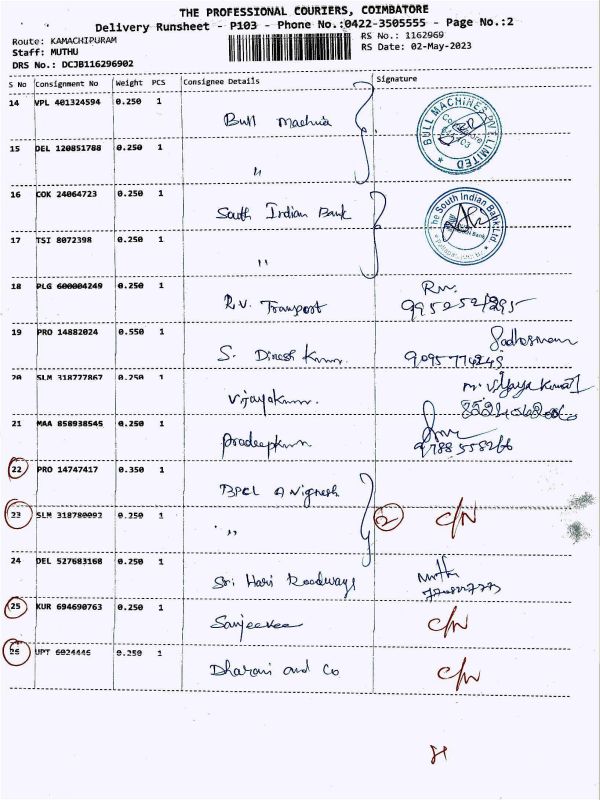 THE PROFESSIONAL COURIERS, COIMBATORE
Delivery Runsheet - P103 - Phone No.:0422-3505555 - Page No.:2
Route: KAMACHIPURAM
RS No.: 1162969
Staff: MUTHU
RS Date: 02-May-2023
DRS No.: DCJB116296902
S No Consignment No Weight PCS Consignee Details Signature
14 VPL 401324594 0.250 1 Bull Machine
BULL MACHINES PVT LIMITED
15 DEL 120851788 0.250 1 "
16 COK 24064723 0.250 1 South Indian Bank
The South Indian Bank Ltd.
17 TSI 8072398 0.250 1 "
18 PLG 600004249 0.250 1 R.V. Transport
19 PRO 14882024 0.550 1 S. Dinesh Kumar. 9095774245
20 SLM 318777867 0.250 1 Vijayakumar. M. Vijaya Kumar
21 MAA 858938545 0.250 1 Pradeepkumar 9788558266
22 PRO 14747417 0.350 1 BPCL A Vignesh
23 SLM 318780092 0.250 1 " 2 C/N
24 DEL 527683168 0.250 1 Sri Hari Roadways
25 KUR 694690763 0.250 1 Sanjeevee C/N
26 UPT 6024445 0.250 1 Dharani and Co C/N